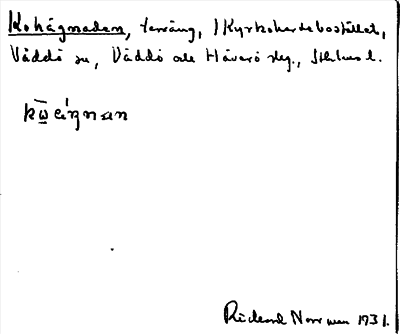 Kohägnaden, terräng, 1 Kyrkoherdebostället,
Väddö sn, Väddö och Häverö slg., Sthlms l.
Rickard Norrman 1931.